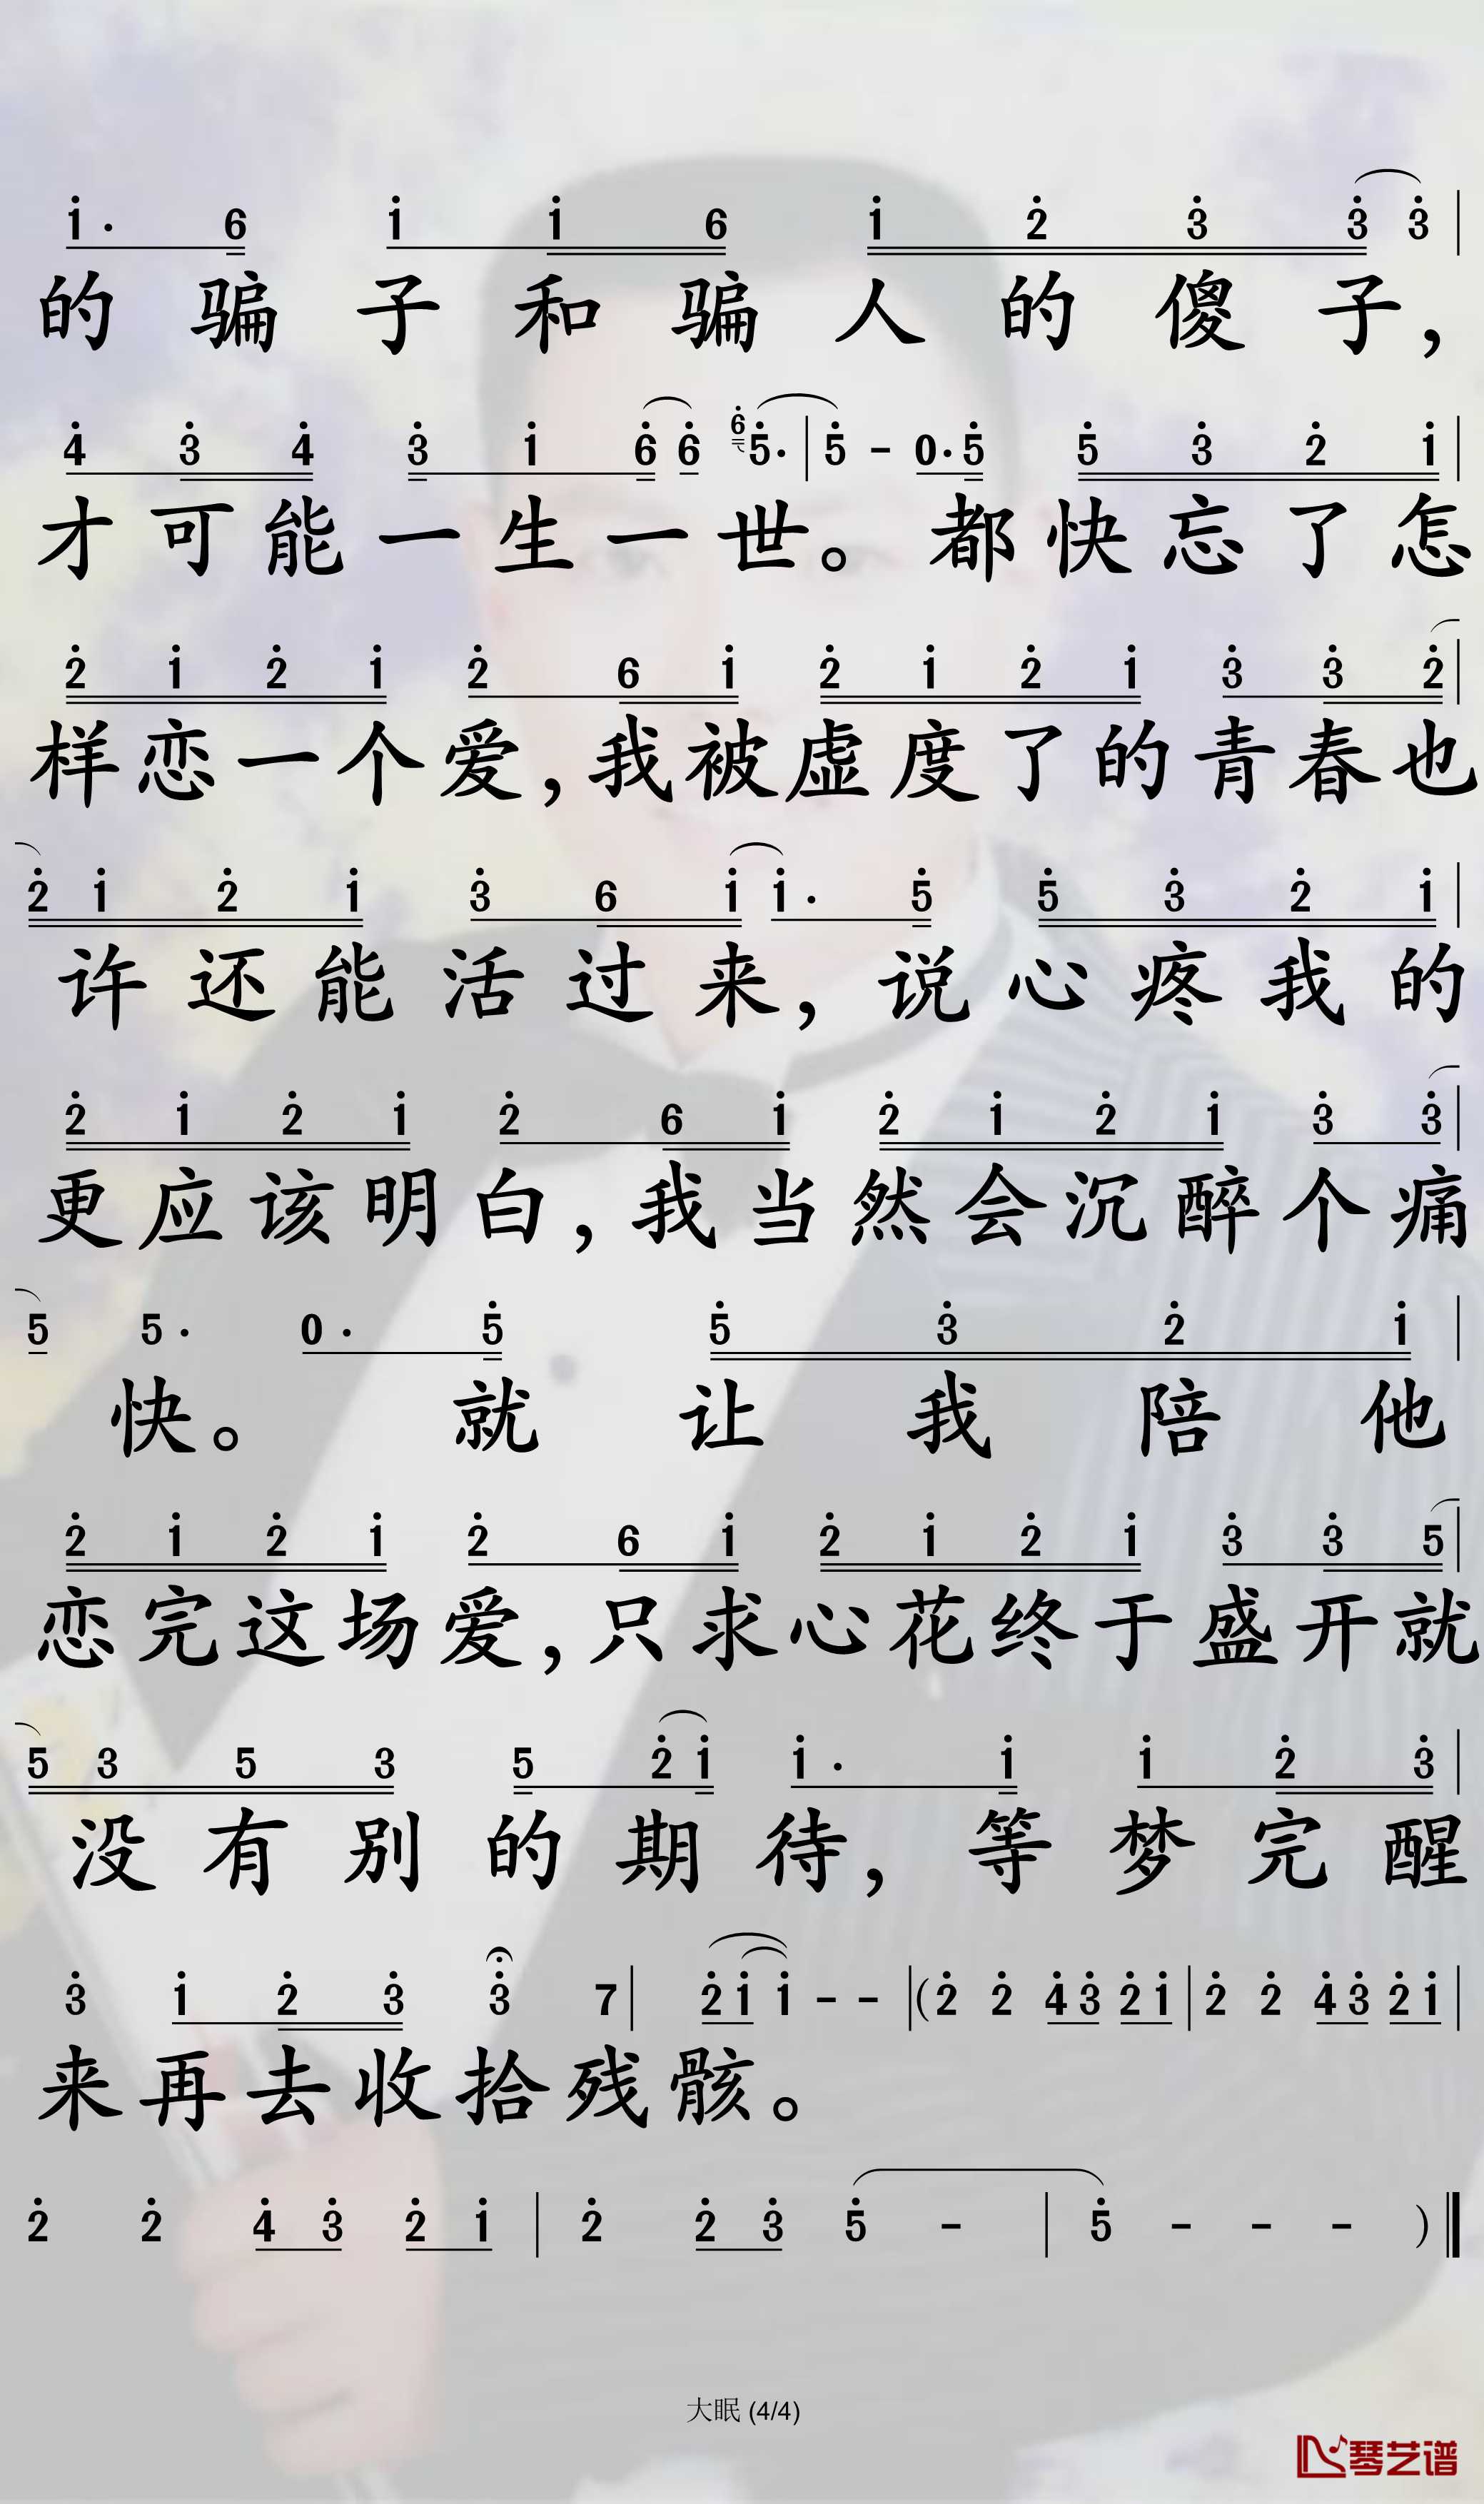 1̇· 6 1̇ 1̇ 6 1̇ 2̇ 3̇ 3̇ 3̇ |
的骗子和骗人的傻子，
4̇ 3̇ 4̇ 3̇ 1̇ 6̇ 6̇ 6̇ 5̇· | 5̇ - 0· 5̇ 5̇ 3̇ 2̇ 1̇ |
才可能一生一世。都快忘了怎
2̇ 1̇ 2̇ 1̇ 2̇ 6 1̇ 2̇ 1̇ 2̇ 1̇ 3̇ 3̇ 2̇ |
样恋一个爱，我被虚度了的青春也
2̇ 1̇ 2̇ 1̇ 3̇ 6 1̇ 1̇· 5̇ 5̇ 3̇ 2̇ 1̇ |
许还能活过来，说心疼我的
2̇ 1̇ 2̇ 1̇ 2̇ 6 1̇ 2̇ 1̇ 2̇ 1̇ 3̇ 3̇ |
更应该明白，我当然会沉醉个痛
5 5· 0· 5̇ 5̇ 3̇ 2̇ 1̇ |
快。就让我陪他
2̇ 1̇ 2̇ 1̇ 2̇ 6 1̇ 2̇ 1̇ 2̇ 1̇ 3̇ 3̇ 5 |
恋完这场爱，只求心花终于盛开就
5 3 5 3 5 2̇ 1̇ 1̇· 1̇ 1̇ 2̇ 3̇ |
没有别的期待，等梦完醒
3̇ 1̇ 2̇ 3̇ 3̇ 7 | 2̇ 1̇ 1̇ - - | (2̇ 2̇ 4̇ 3̇ 2̇ 1̇ | 2̇ 2̇ 4̇ 3̇ 2̇ 1̇ |
来再去收拾残骸。
2̇ 2̇ 4̇ 3̇ 2̇ 1̇ | 2̇ 2̇ 3̇ 5̇ - | 5̇ - - - )
大眠 (4/4)
琴艺谱